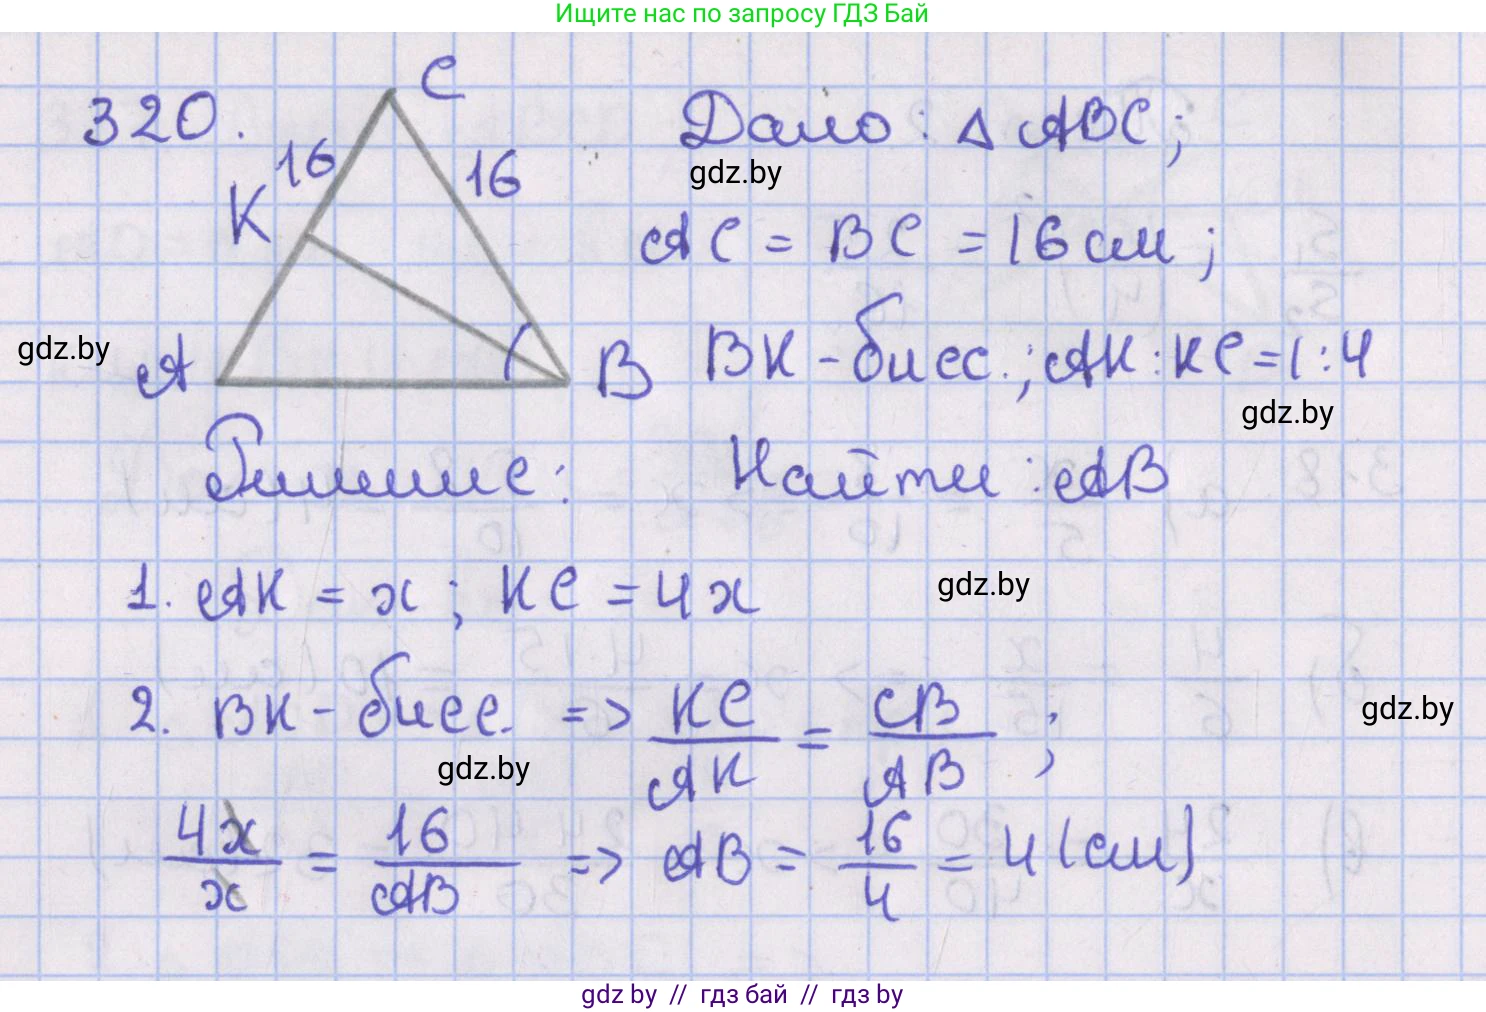 Ищите нас по запросу ГДЗ Бай
320.
C
16
16
K
A
B
Дано: △ ABC;
gdz.by
AC = BC = 16 см;
gdz.by
BK - бисс.; AK : KC = 1 : 4
gdz.by
Решение:
Найти: AB
1. AK = x; KC = 4x
gdz.by
2. BK - бисс. => KC/AK = CB/AB;
gdz.by
gdz.by
4x/x = 16/AB => AB = 16/4 = 4 (см)
gdz by // гдз бай // гдз by